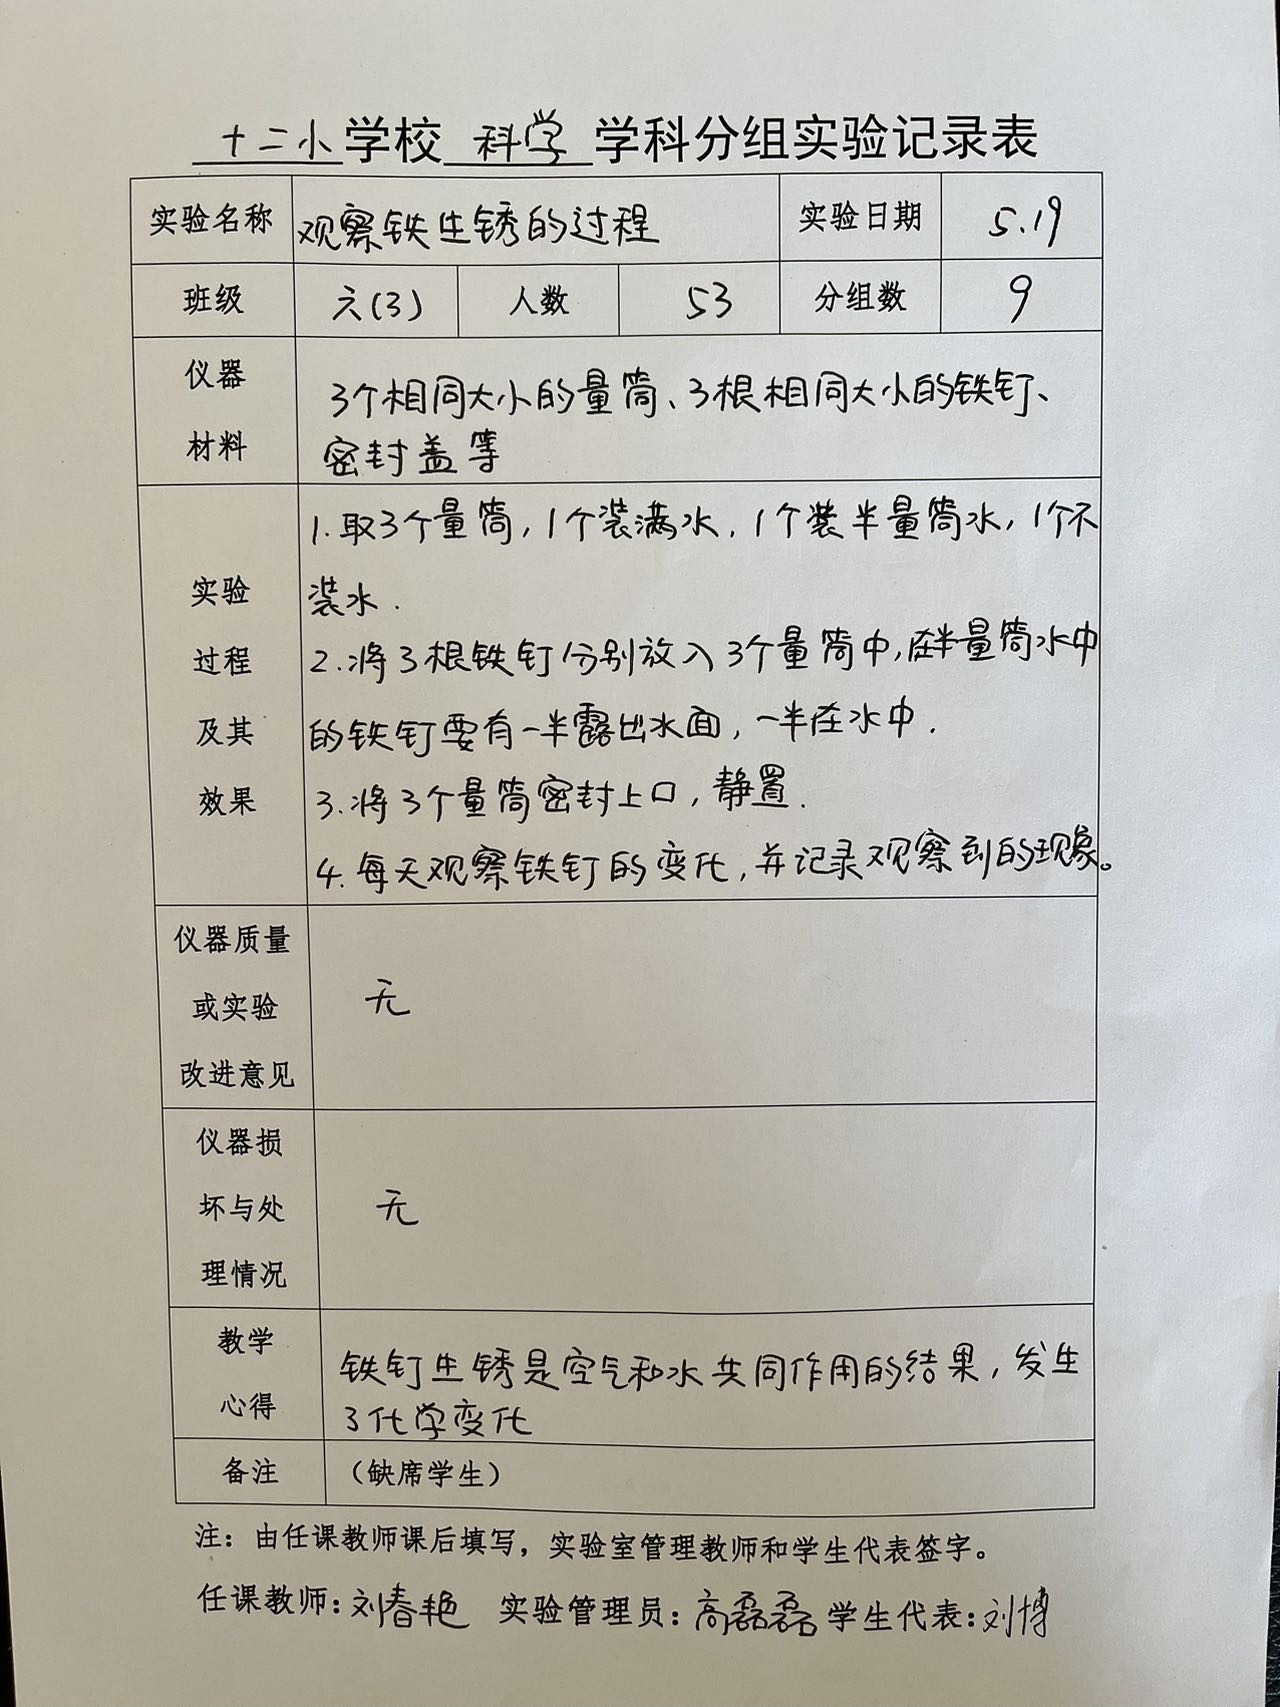 十二小学校 科学 学科分组实验记录表
实验名称 观察铁生锈的过程 实验日期 5.19
班级 六(3) 人数 53 分组数 9
仪器
材料
3个相同大小的量筒、3根相同大小的铁钉、
密封盖等
实验
过程
及其
效果
1.取3个量筒,1个装满水,1个装半量筒水,1个不
装水.
2.将3根铁钉分别放入3个量筒中,在半量筒水中
的铁钉要有一半露出水面,一半在水中.
3.将3个量筒密封上口,静置.
4.每天观察铁钉的变化,并记录观察到的现象。
仪器质量
或实验
改进意见
无
仪器损
坏与处
理情况
无
教学
心得
铁钉生锈是空气和水共同作用的结果,发生
了化学变化
备注 (缺席学生)
注:由任课教师课后填写,实验室管理教师和学生代表签字。
任课教师:刘春艳 实验管理员:高磊磊 学生代表:刘博